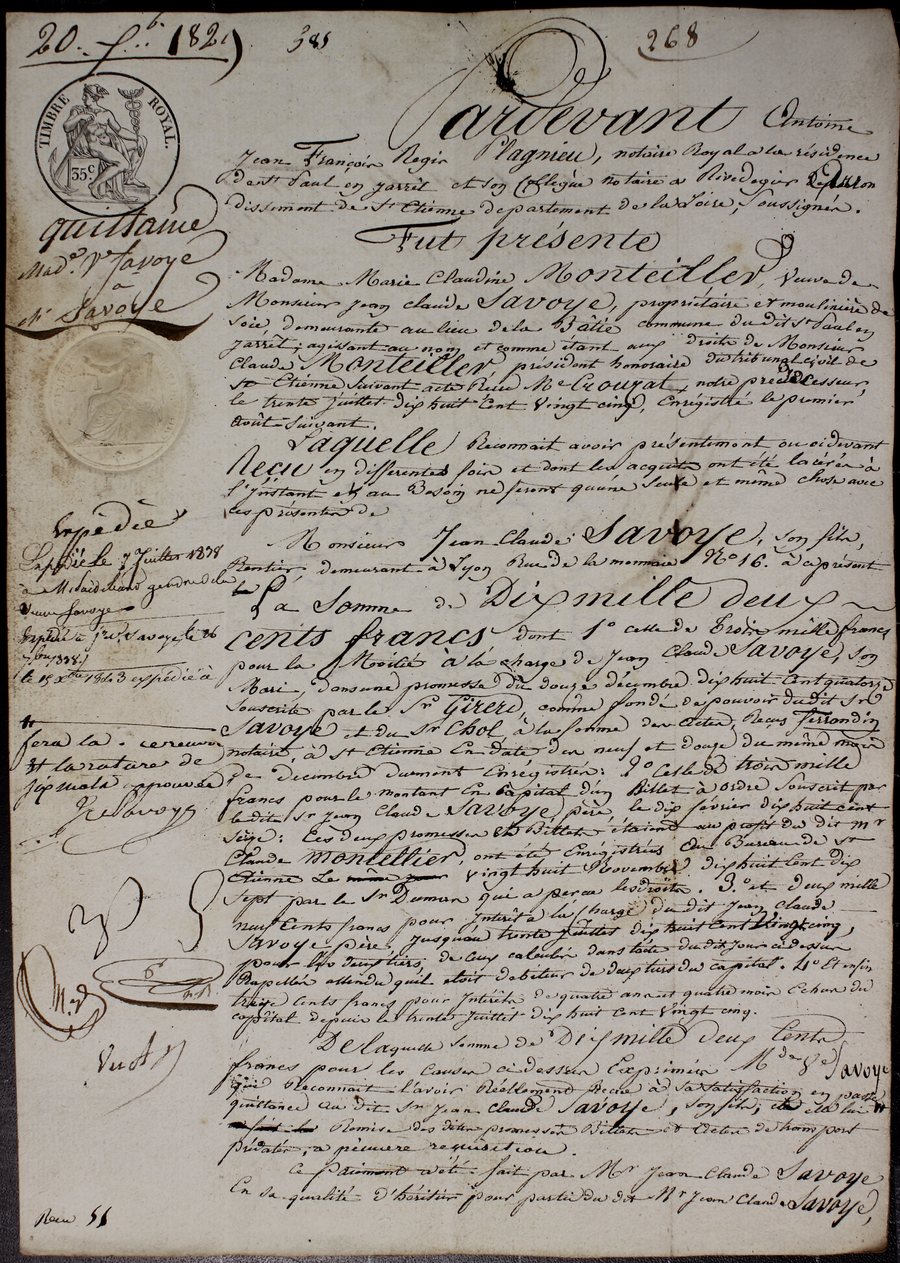 20. 7b. 182
385
268
TIMBRE ROYAL.
35c
Pardevant Antoine
Jean François Regis Plagnieu, notaire Royal a la résidence
de St Paul en jarrêt et son Collegue notaire a Rivedegier
dissement de St Etienne departement de la Loire, soussignés.
quittance
Made. Ve Savoye
a
Mr Savoye
Fut présente
Madame Marie Claudine Monteiller, veuve de
Monsieur Jean Claude Savoye, propriétaire et moulinière de
soie demeurante au lieu de la Bâtie commune du dit St Paul en
jarrêt; agissant au nom et comme étant aux droits de Monsieur
Claude Monteiller, président honoraire du tribunal civil de
St Etienne Suivant acte Reçu Me Crouzat, notre predécesseur
le trente juillet dix huit Cent Vingt cinq, Enrégistré le premier
Août Suivant.
Laquelle Reconnait avoir présentement ou cidevant
Reçu en differentes fois et dont les acquits ont été lacérés à
l'Instant et au Besoin ne feront qu'une seule et même chose avec
ces présentes de
Monsieur Jean Claude Savoye, son fils,
Rentier, demeurant à Lyon Rue de la monnaie No 16. à ce présent
La Somme de Dix mille deux
cents francs dont 1o celle de trois mille francs
pour la Moitié à la charge de Jean Claude Savoye, son
Mari, dans une promesse du douze décembre dix huit Cent quatorze
Souscrite par le Sr Gireri, comme fondé de pouvoir du dit Sr
Savoye et du Sr Chol, à la forme des actes Reçus ferrandin
notaire, à St Etienne En date des neuf et douze du même mois
de décembre dument Enrégistrés: 2o Celle de trois mille
francs pour le montant En Capital d'un Billet à ordre Souscrit par
le dit Sr Jean Claude Savoye père, le dix février dix huit cent
seize: Ces deux promesses et Billets étaient au profit du dit mr
Claude Montellier, ont été Enrégistrés au Bureau de St
Etienne Le même jour Vingt huit Novembre dix huit Cent dix
Sept par le Sr Dumas qui a perçu les droits. 3o et deux mille
neuf Cents francs pour Intérêts à la charge du dit Jean Claude
Savoye père, jusqu'au trente juillet dix huit Cent Vingt cinq,
pour les deux tiers de ceux calculés dans l'acte du dit jour ci dessus
Rappellé attendu qu'il étoit debiteur de deux tiers du capital. 4o Et enfin
treize cents francs pour Intérêts de quatre ans et quatre mois Echus du
capital depuis le trente juillet dix huit Cent Vingt cinq.
De laquelle somme de Dix mille deux Cents
francs pour les causes ci dessus Exprimées Mde Ve Savoye
qui Reconnait l'avoir Réellement Reçue à sa satisfaction en passe
quittance au dit Sr Jean Claude Savoye, son fils,
Remise des dites promesses Billets et Actes de transport
prédatés, a première requisition.
Ce paiement a été fait par Mr Jean Claude Savoye
En sa qualité d'héritier pour partie du dit Mr Jean Claude Savoye,
expédié
Expédié le 7 Juillet 1838
gendre de la
veuve Savoye
expédié à Savoye le 26
1838
le 15 Xbre 1843 expédié à
fera la
et la rature de
six mots approuvée
Ve Savoye